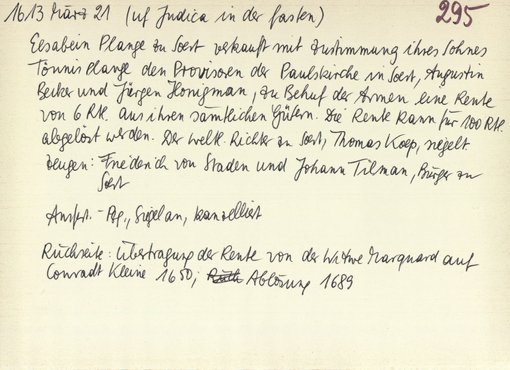 1613 März 21 (uf Judica in der fasten)
295
Elsabein Plange zu Soest verkauft mit Zustimmung ihres Sohnes
Tönnis Plange den Provisoren der Paulskirche in Soest, Augustin
Becker und Jürgen Honigman, zu Behuf der Armen eine Rente
von 6 Rtl. aus ihren sämtlichen Gütern. Die Rente kann für 100 Rtl.
abgelöst werden. Der weltl. Richter zu Soest, Thomas Koep, siegelt.
Zeugen: Friederich von Staden und Johann Tilman, Bürger zu
Soest
Ausfert. - Pg., Siegel an, kanzelliert
Rückseite: Übertragung der Rente von der Witwe Marquard auf
Conradt Kleine 1650; Ablösung 1689